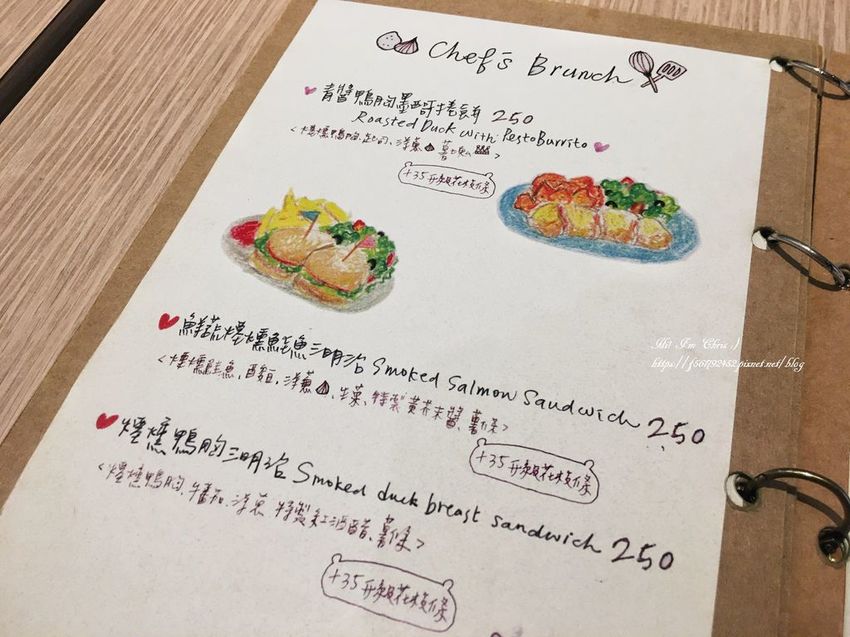 Chef's Brunch
青醬鴨胸墨西哥捲餅 250
Roasted Duck with Pesto Burrito
<煙燻鴨胸.起司.洋蔥 薯塊>
+35升級花枝條
鮮蔬煙燻鮭魚三明治 Smoked Salmon Sandwich 250
<煙燻鮭魚.酸豆.洋蔥、生菜、特製黃芥末醬、薯條>
+35升級花枝條
煙燻鴨胸三明治 Smoked duck breast sandwich 250
<煙燻鴨胸.番茄.洋蔥 特製紅酒醋、薯條>
+35升級花枝條
Hi! I'm Chris :)
https://j56792482.pixnet.net/blog